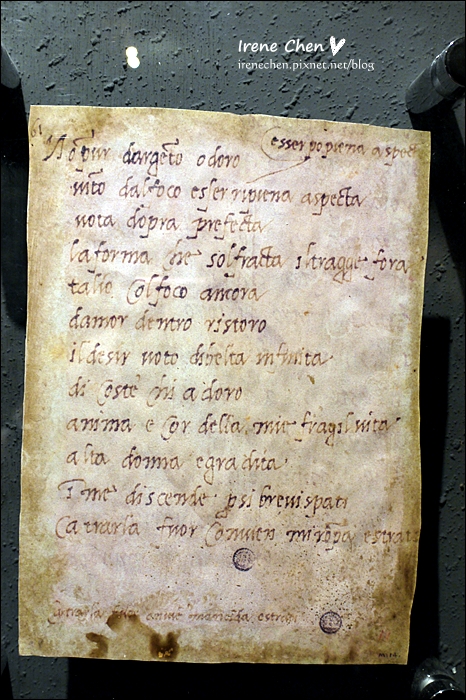 Irene Chen
irenechen.pixnet.net/blog
esser po piena aspect
Nō pur dargēto o doro
vīto dal foco esser ripiena aspecta
vota dōpra p̄refecta
la forma che sol fracta il tragge fora
tal io col foco ancora
damor dentro ristoro
il desir voto di belta infinita
di coste chi adoro
anima e cor della mie fragil uita
alta donna e gradita
ī me discende p si brevi spati
ca trarla fuor convien mi rōpa e strati
fuor